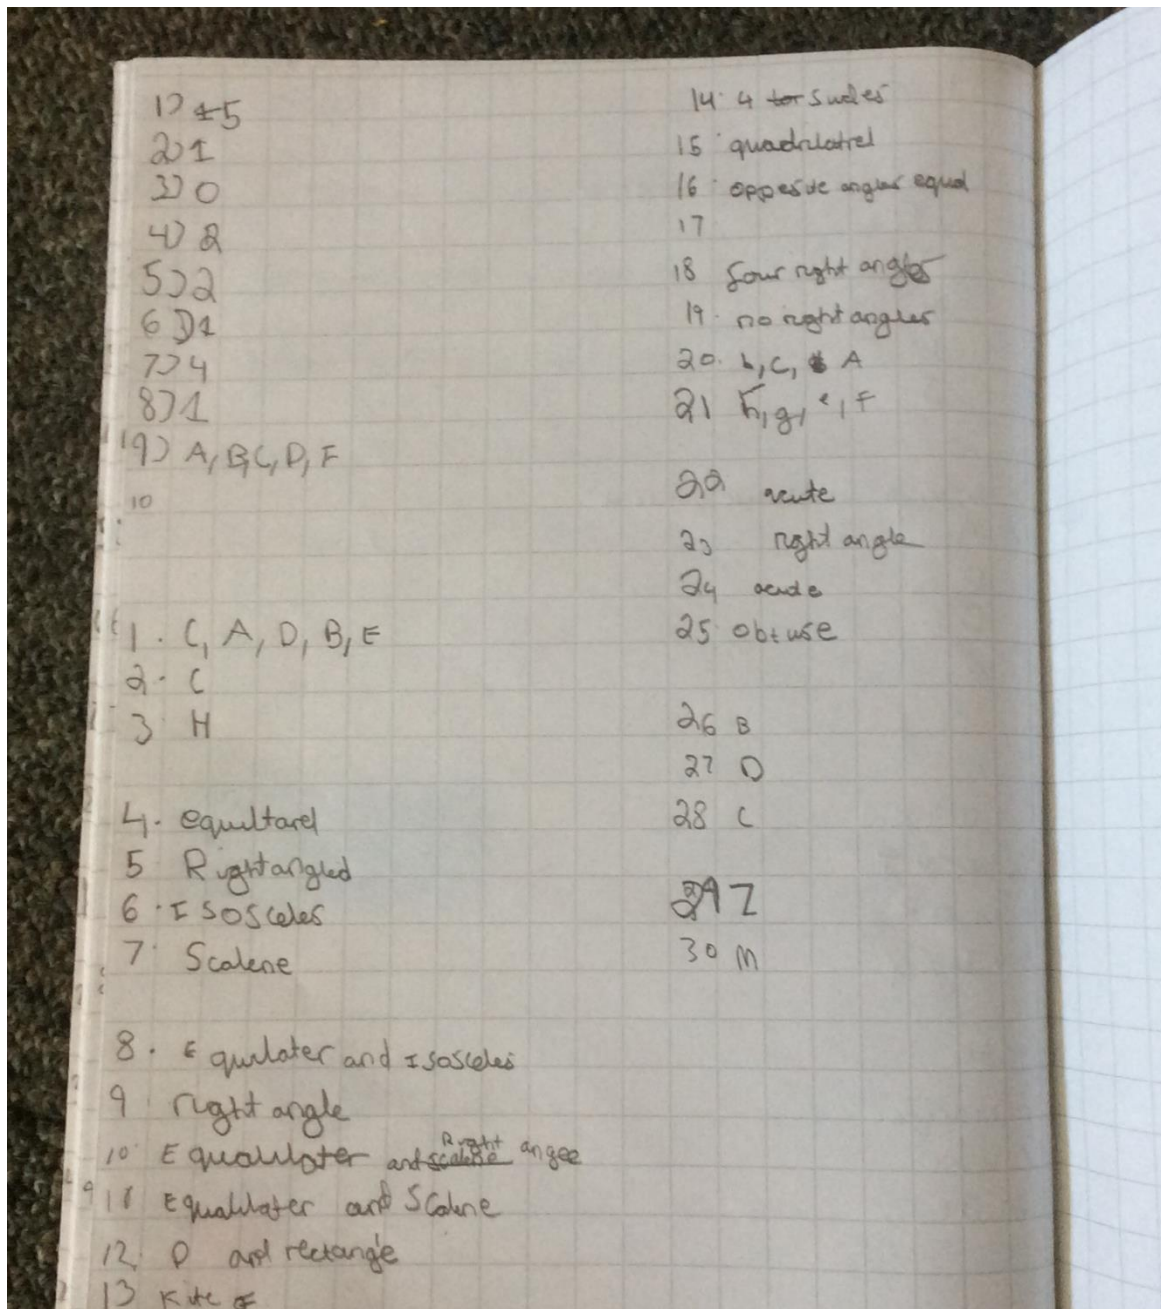 1) 5
2) 1
3) 0
4) 2
5) 2
6) 1
7) 4
8) 1
9) A, B, C, D, F
10
1. C, A, D, B, E
2. C
3 H
4. equiltarel
5 Rightangled
6. Isosceles
7. Scalene
8. Equilater and Isosceles
9 right angle
10 Equalilater and Right angee
11 Equalilater and Scalene
12. D and rectangle
13 Kite
14. 4 sides
15 quadrilatrel
16. opposite angles equal
17
18 four right angles
19. no right angles
20. b, C, A
21 h, g, e, F
22 acute
23 right angle
24 acude
25. obtuse
26 B
27 D
28 C
29 Z
30 M